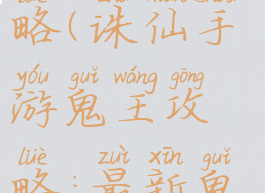 略(诛仙手
yóu guǐ wáng gōng
游鬼王攻
lüè : zuì xīn guǐ
略:最新鬼